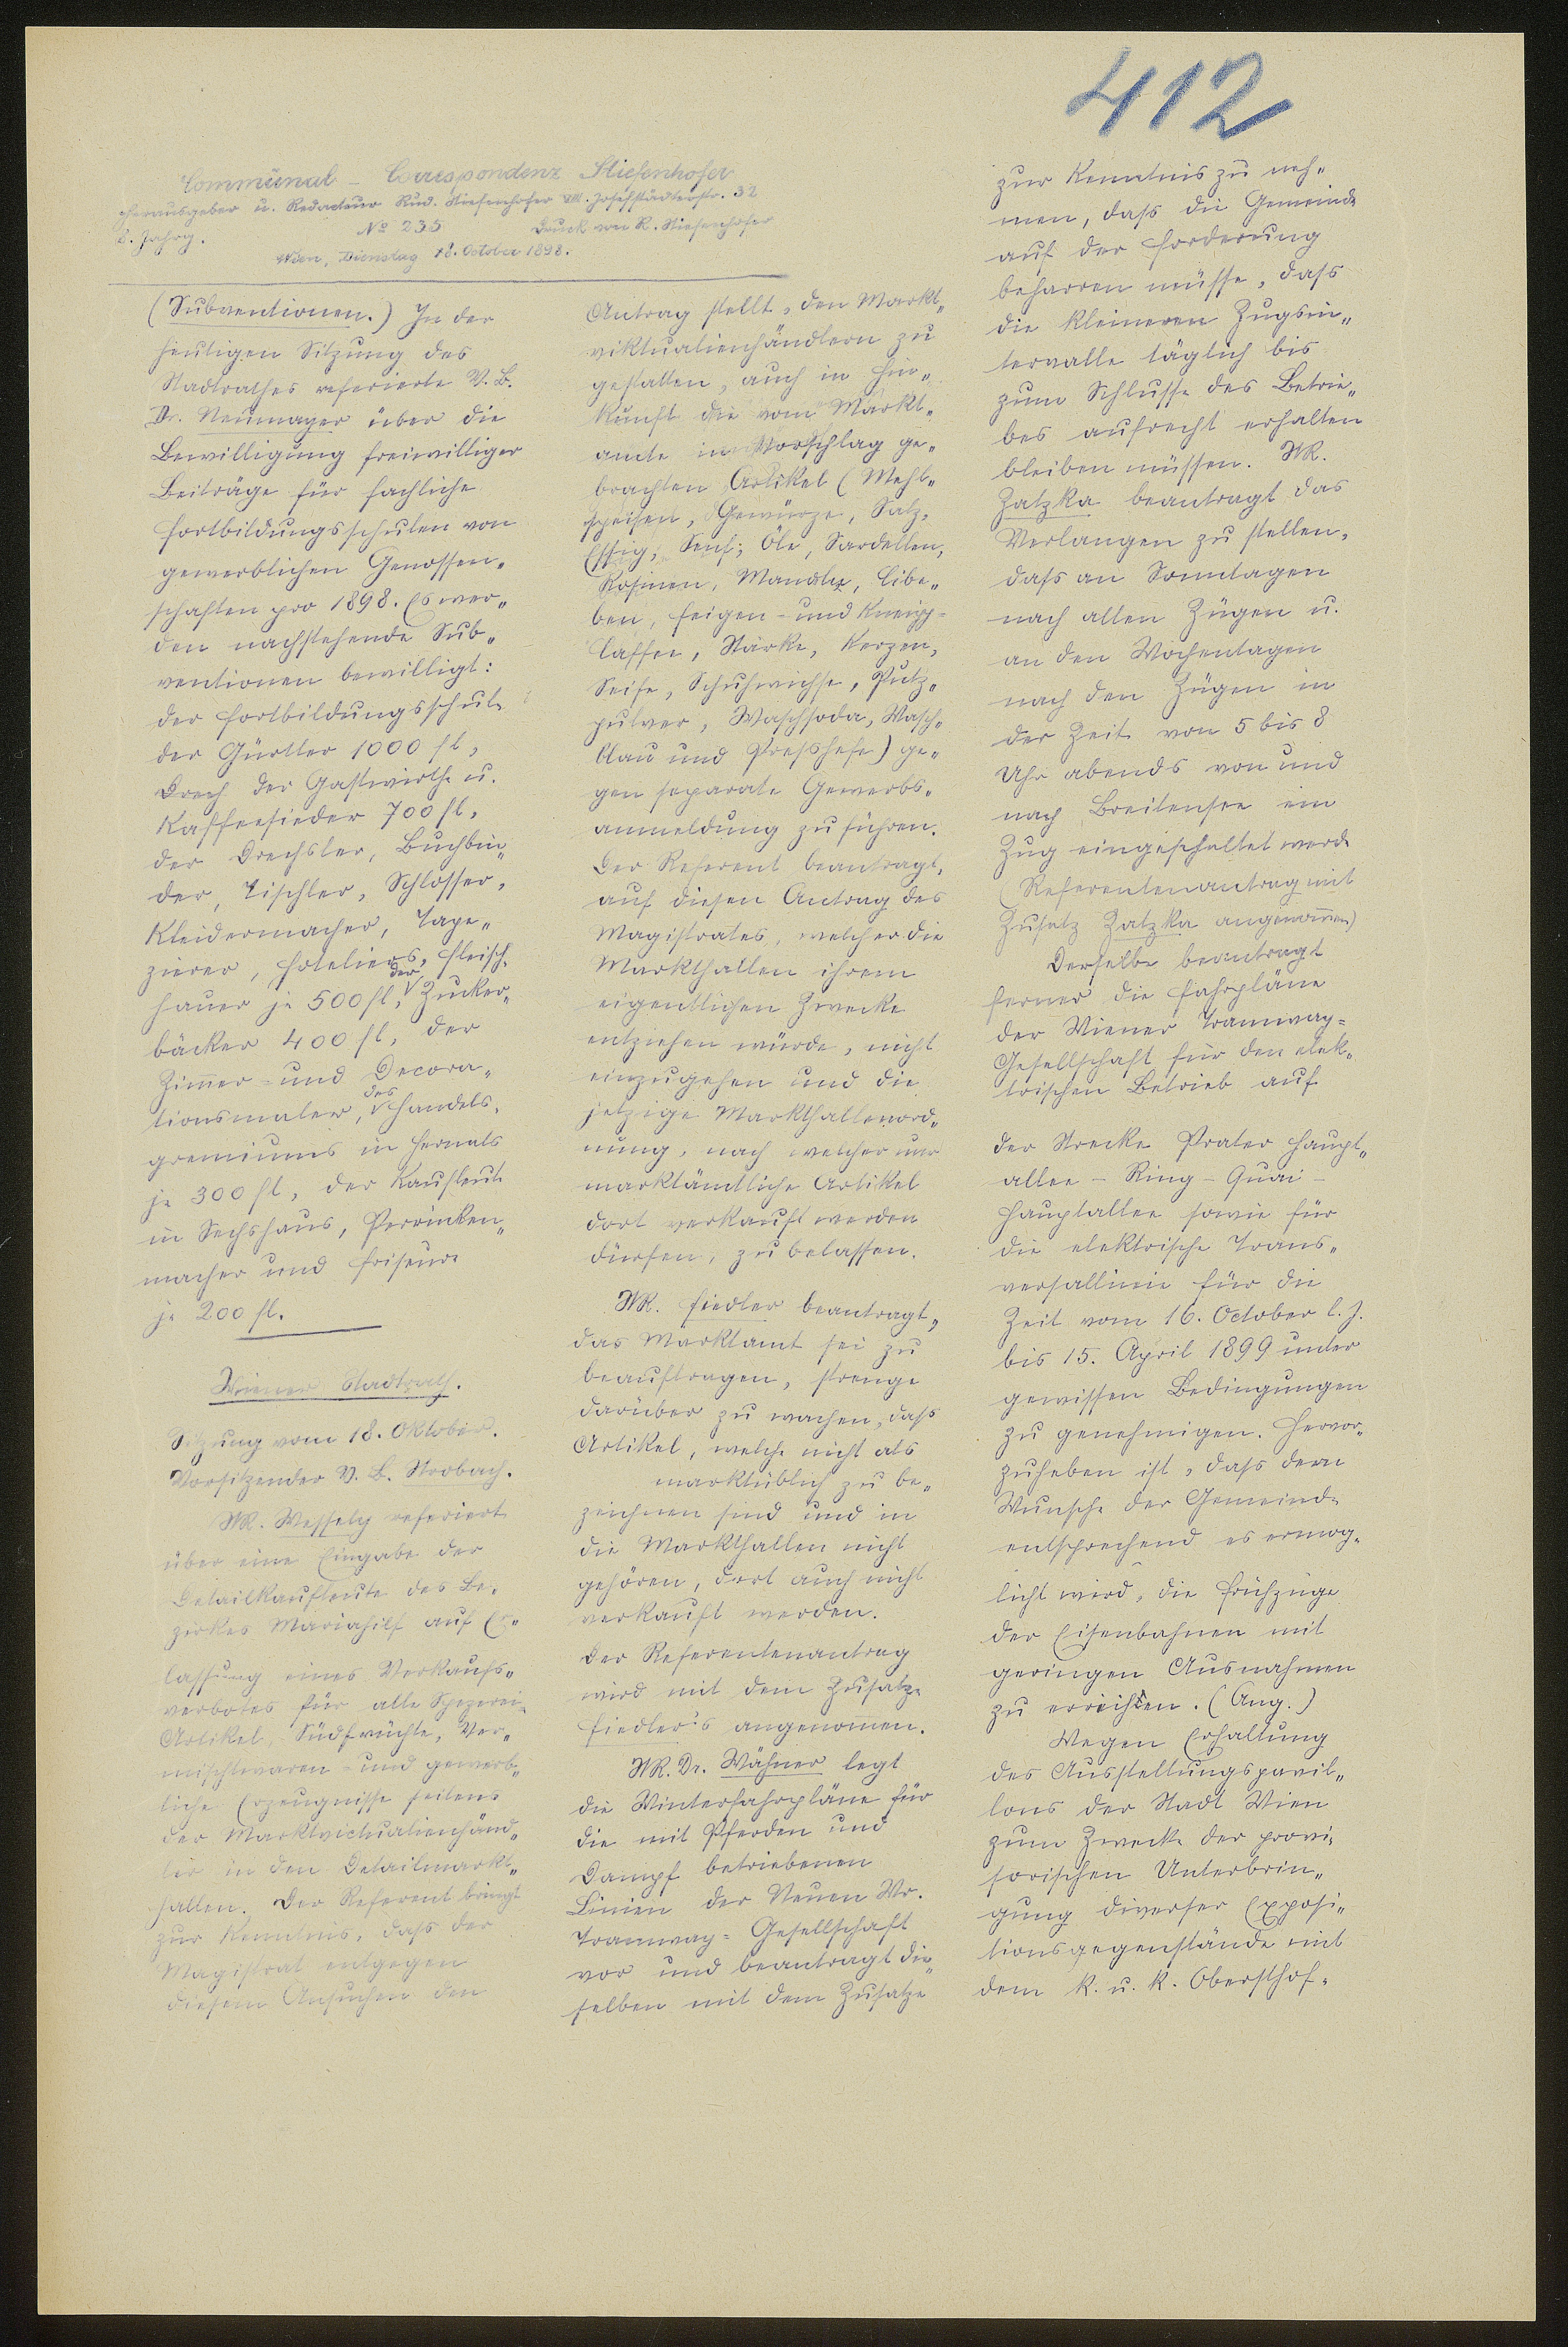 412
Communal - Correspondenz Stiefenhofer
Herausgeber u. Redacteur Rud. Stiefenhofer VIII. Josefstädterstr. 32
8. Jahrg. No 235 Druck von R. Stiefenhofer
Wien, Dienstag 18. October 1898.
(Subventionen.) In der
heutigen Sitzung des
Stadtrathes referierte V. B.
Dr. Neumayer über die
Bewilligung freiwilliger
Beiträge für fachliche
Fortbildungsschulen von
gewerblichen Genossen„
schaften pro 1898. Es wer„
den nachstehende Sub„
ventionen bewilligt:
der Fortbildungsschule
der Gürtler 1000 fl,
der Gastwirthe u.
Kaffeesieder 700 fl,
der Drechsler, Buchbin„
der, Tischler, Schlosser,
Kleidermacher, Tape„
zierer, Hoteliers, Fleisch„
hauer je 500 fl, der Zucker„
bäcker 400 fl, der
Zimmer- und Decora„
tionsmaler, des Handels„
gremiums in Hernals
je 300 fl, der Kaufleute
in Sechshaus, Perrücken„
macher und Friseure
je 200 fl.
Wiener Stadtrath.
Sitzung vom 18. Oktober.
Vorsitzender V. B. Strobach.
StR. Wessely referiert
über eine Eingabe der
Detailkaufleute des Be„
zirkes Mariahilf auf Er„
lassung eines Verkaufs„
verbotes für alle Spezerei-
Artikel, Südfrüchte, Ver„
mischtwaren- und gewerb„
liche Erzeugnisse seitens
der Marktvictualienhänd„
ler in den Detailmarkt„
hallen. Der Referent bringt
zur Kenntnis, dass der
Magistrat entgegen
diesem Ansuchen den
Antrag stellt, den Markt„
viktualienhändlern zu
gestatten, auch in Hin„
kunft die vom Markt„
amte in Vorschlag ge„
brachten Artikel (Mehl„
speisen, Gewürze, Salz,
Essig, Senf, Öle, Sardellen,
Rosinen, Mandeln, Zibe„
ben, Feigen- und Kneipp-
caffee, Stärke, Kerzen,
Seife, Schuhwichse, Putz„
pulver, Waschsoda, Wasch„
blau und Presshefe) ge„
gen separate Gewerbs„
anmeldung zu führen.
Der Referent beantragt,
auf diesen Antrag des
Magistrates, welcher die
Markthallen ihrem
eigentlichen Zwecke
entziehen würde, nicht
einzugehen und die
jetzige Markthallenord„
nung, nach welcher nur
marktämtliche Artikel
dort verkauft werden
dürfen, zu belassen.
StR. Fiedler beantragt,
das Marktamt sei zu
beauftragen, strenge
darüber zu wachen, dass
Artikel, welche nicht als
marktüblich zu be„
zeichnen sind und in
die Markthallen nicht
gehören, dort auch nicht
verkauft werden.
Der Referentenantrag
wird mit dem Zusatze
Fiedler's angenommen.
StR. Dr. Wähner legt
die Winterfahrpläne für
die mit Pferden und
Dampf betriebenen
Linien der Neuen Wr.
Tramway-Gesellschaft
vor und beantragt die„
selben mit dem Zusatze
zur Kenntnis zu neh„
men, dass die Gemeinde
auf der Forderung
beharren müsse, dass
die kleineren Zugsin„
tervalle täglich bis
zum Schlusse des Betrie„
bes aufrecht erhalten
bleiben müssen. StR.
Zatzka beantragt das
Verlangen zu stellen,
dass an Sonntagen
nach allen Zügen u.
an den Wochentagen
nach den Zügen in
der Zeit von 5 bis 8
Uhr abends von und
nach Breitensee ein
Zug eingeschaltet werde
(Referentenantrag mit
Zusatz Zatzka angenommen)
Derselbe beantragt
ferner die Fahrpläne
der Wiener Tramway-
Gesellschaft für den elek„
trischen Betrieb auf
der Strecke Prater Haupt„
allee - Ring - Quai -
Hauptallee sowie für
die elektrische Trans„
versallinie für die
Zeit vom 16. October l. J.
bis 15. April 1899 unter
gewissen Bedingungen
zu genehmigen. Hervor„
zuheben ist, dass dem
Wunsche der Gemeinde
entsprechend es ermög„
licht wird, die Frühzüge
der Eisenbahnen mit
geringen Ausnahmen
zu erreichen. (Ang.)
Wegen Erhaltung
des Ausstellungspavil„
lons der Stadt Wien
zum Zwecke der provi„
sorischen Unterbrin„
gung diverser Exposi„
tionsgegenstände mit
dem k. u. k. Obersthof„